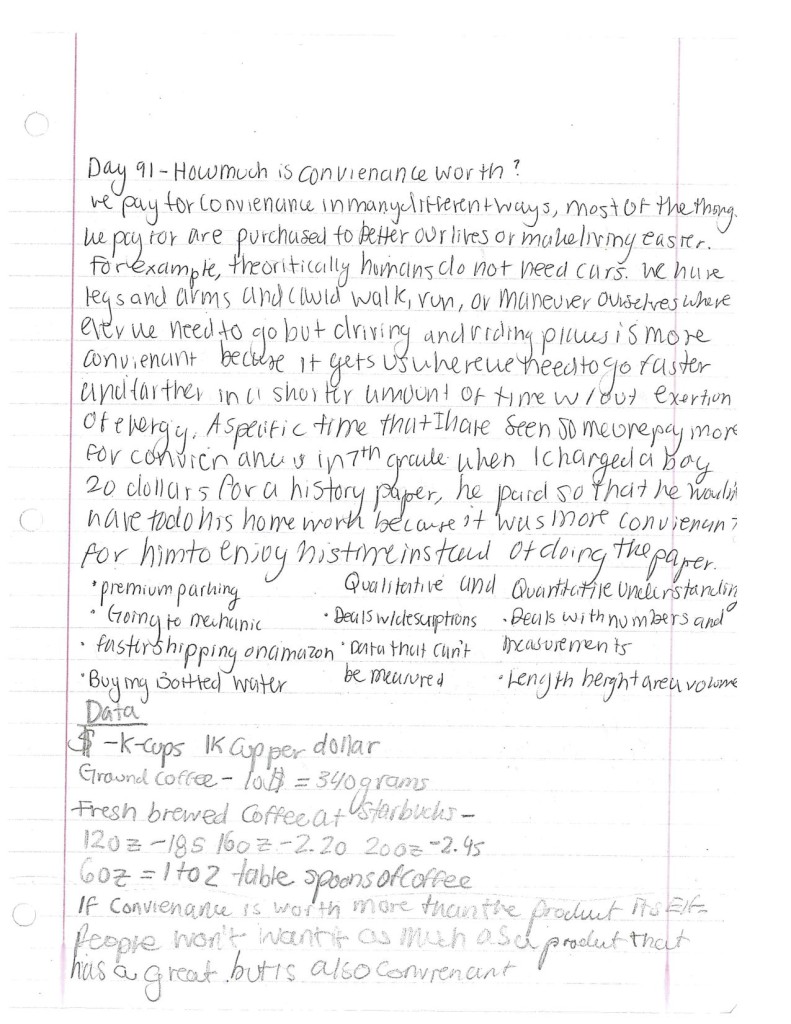 Day 91 - How much is convienance worth?
We pay for convienance in many different ways, most of the thong.
We pay for are purchased to better our lives or make living easier.
For example, theoritically humans do not need cars. We have
legs and arms and could walk, run, or maneuver ourselves where
ever we need to go but driving and riding planes is more
convienant because it gets us where we need to go faster
and farther in a shorter amount of time w/out exertion
of energy. A specific time that I have seen someone pay more
for convienance is in 7th grade when I charged a boy
20 dollars for a history paper, he paid so that he wouldn
have to do his home work because it was more convienan
for him to enjoy his time instead of doing the paper.
• premium parking Qualitative and Quantitative Understandin
• Going to mechanic • Deals w/descriptions • Deals with numbers and
• faster shipping on amazon • Data that can't measurements
• Buying Bottled water be measured • Length height area volume
Data
$ - K-cups 1K cup per dollar
Ground coffee - 10$ = 340 grams
Fresh brewed Coffee at Starbucks -
12oz - 185 16oz - 2.20 20oz - 2.45
6oz = 1 to 2 table spoons of coffee
If Convienance is worth more than the product itself
People won't want it as much as a product that
has a great but is also convienant